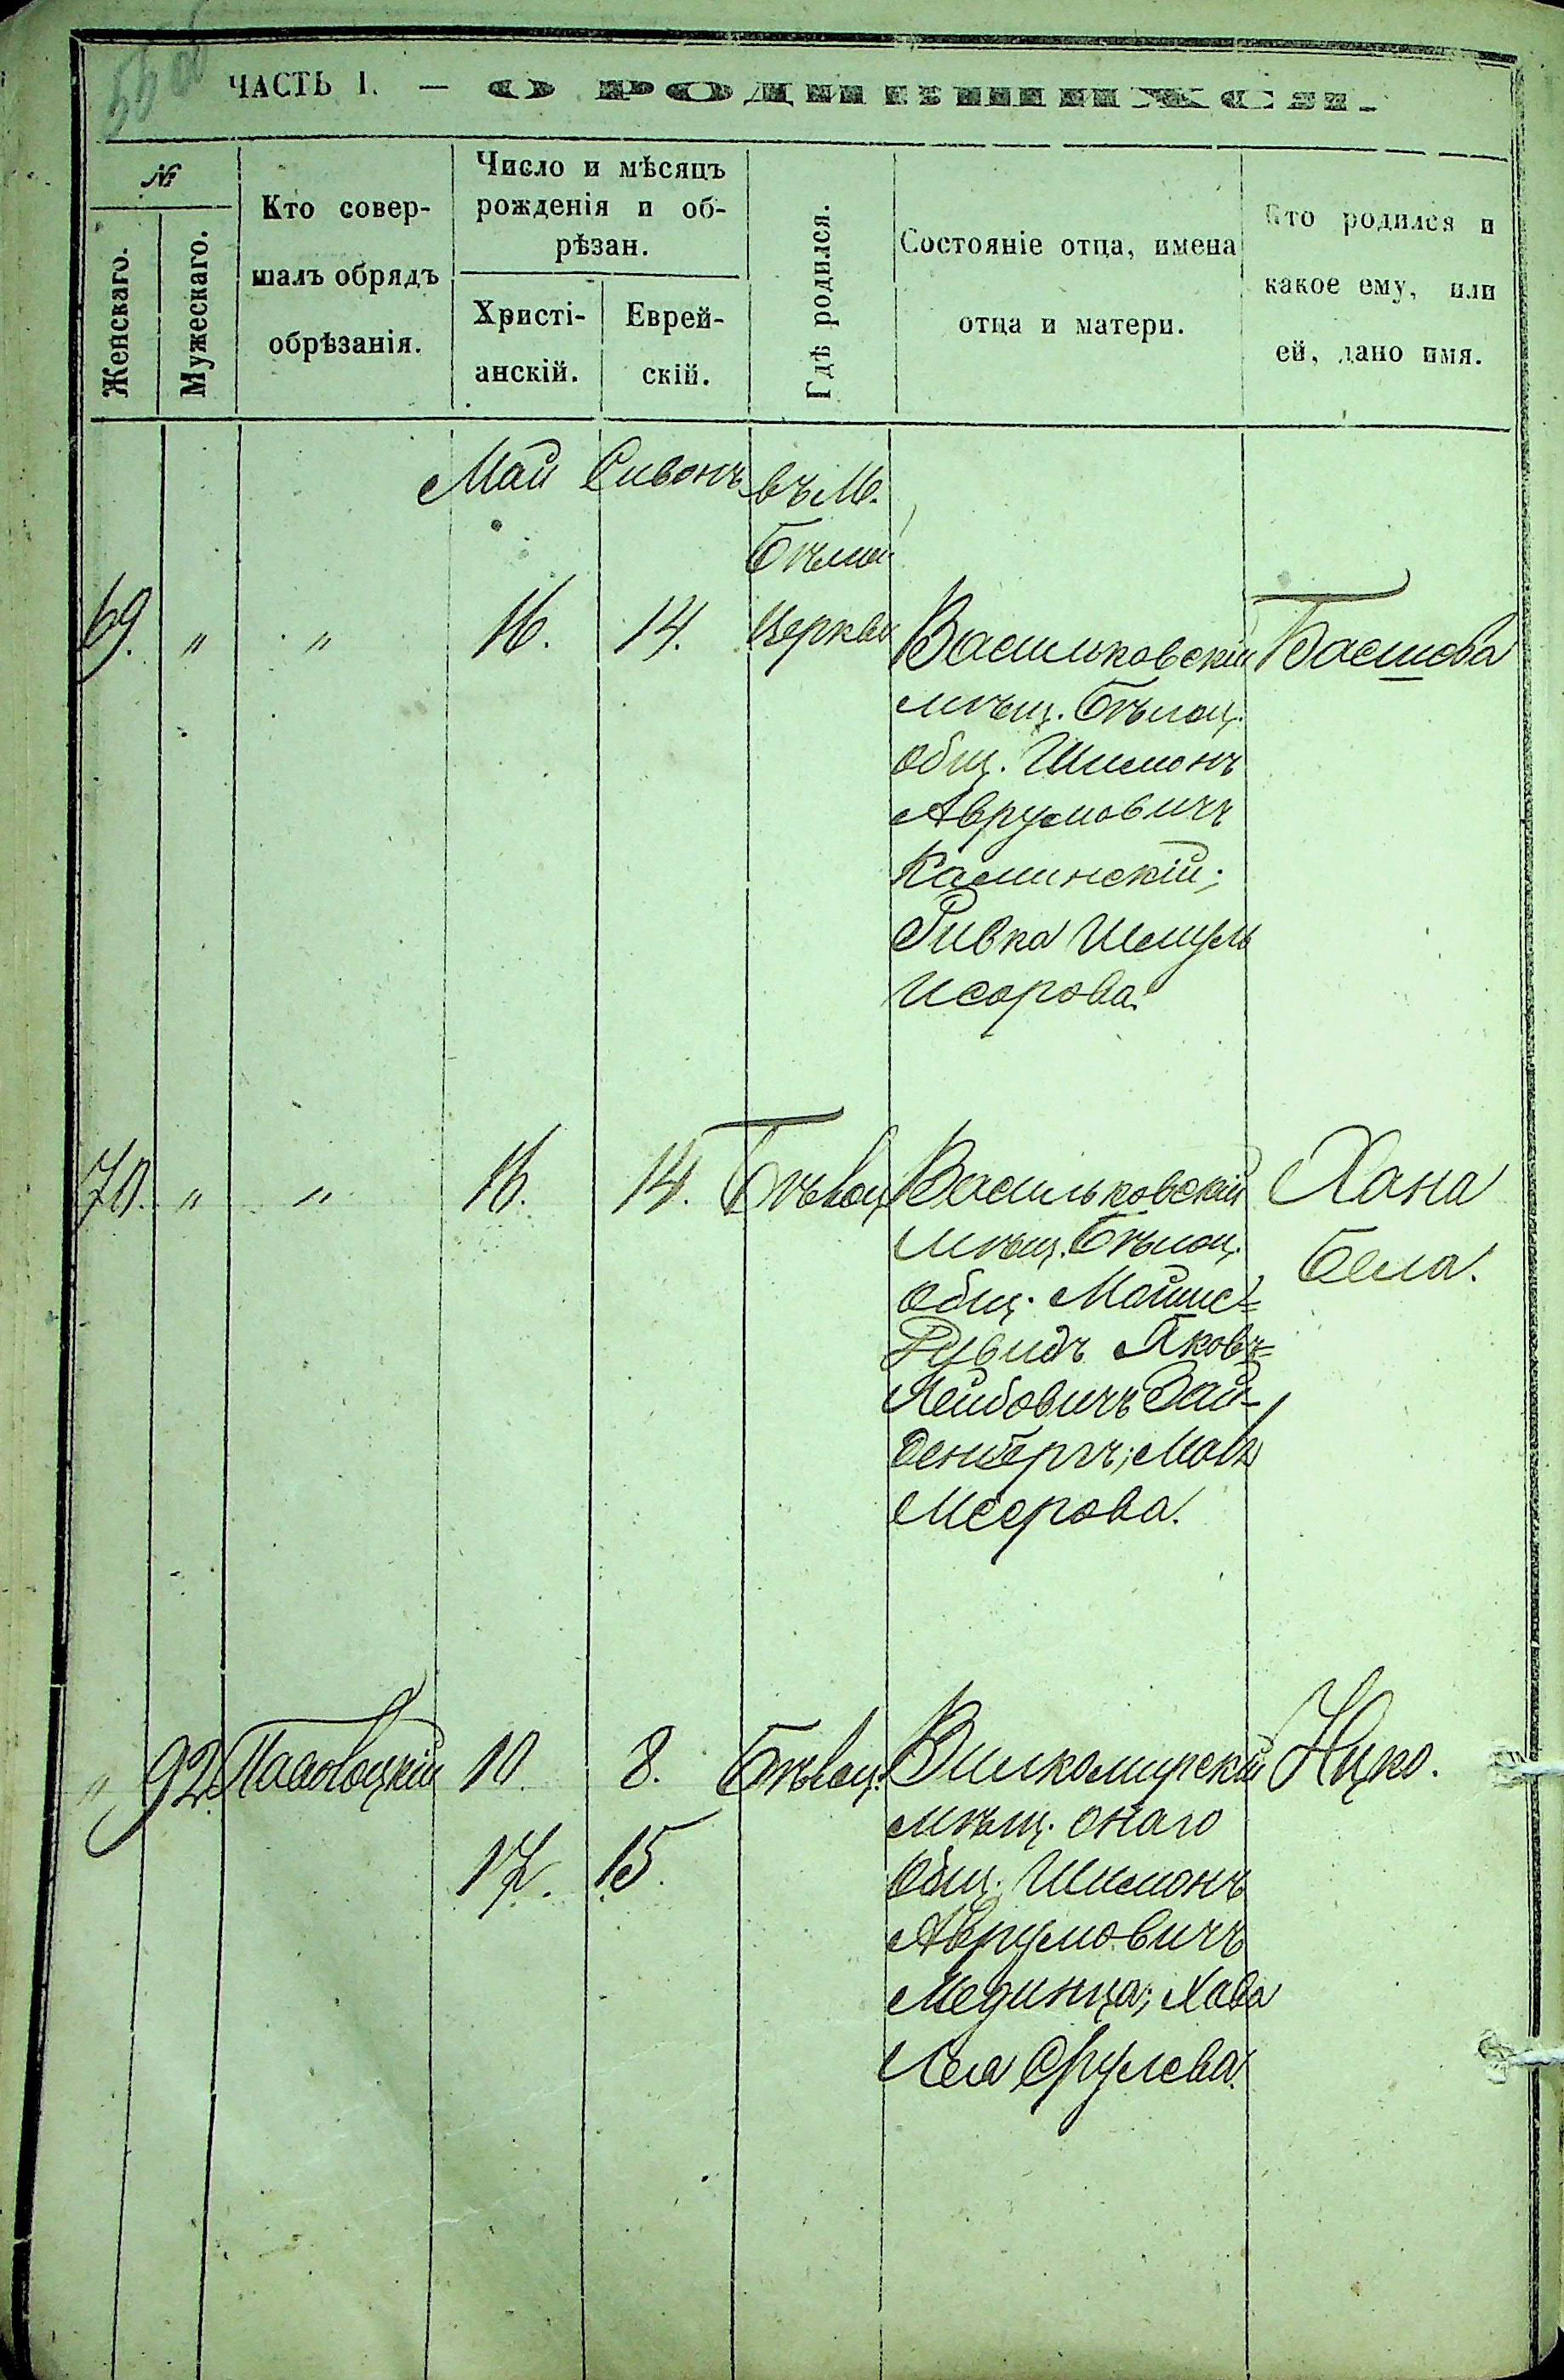 55 об
ЧАСТЬ I. — О РОДИВШИХСЯ.
№
Женскаго.
Мужескаго.
Кто совер-
шалъ обрядъ
обрѣзанія.
Число и мѣсяцъ
рожденія и об-
рѣзан.
Христі-
анскій.
Еврей-
скій.
Гдѣ родился.
Состояніе отца, имена
отца и матери.
Кто родился и
какое ему, или
ей, дано имя.
Май Сивонъ въ М.
Бѣлой
69. " " 16. 14. Церкви Васильковскій Басшева
мѣщ. Бѣлоц.
общ. Шимонъ
Аврумовичъ
Каминскій;
Ривка Шмуль
Исорова.
70. " " 16. 14. Бѣлоц. Васильковскій Хана
мѣщ. Бѣлоц. Бела.
общ. Мойше=
Дувидъ Яковъ=
Лейбовичъ Зай-
денбергъ;
Меерова.
" 92. 10. 8. Бѣлоц. Вилкомирскій Ицко.
мѣщ. онаго
17. 15. общ. Шимонъ
Аврумовичъ
Медынца; Хава
Леа Срулева.